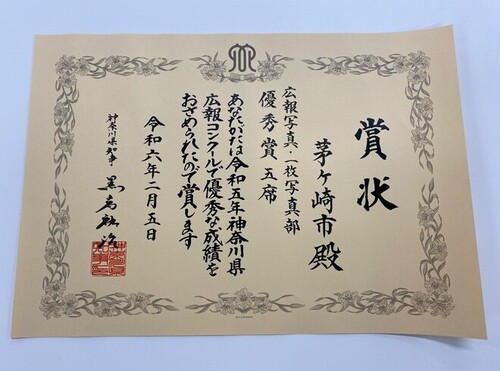 賞状
茅ヶ崎市殿
広報写真・一枚写真部
優秀賞五席
あなたがたは令和五年神奈川県
広報コンクールで優秀な成績を
おさめられたので賞します
令和六年二月五日
神奈川県知事 黒岩祐治